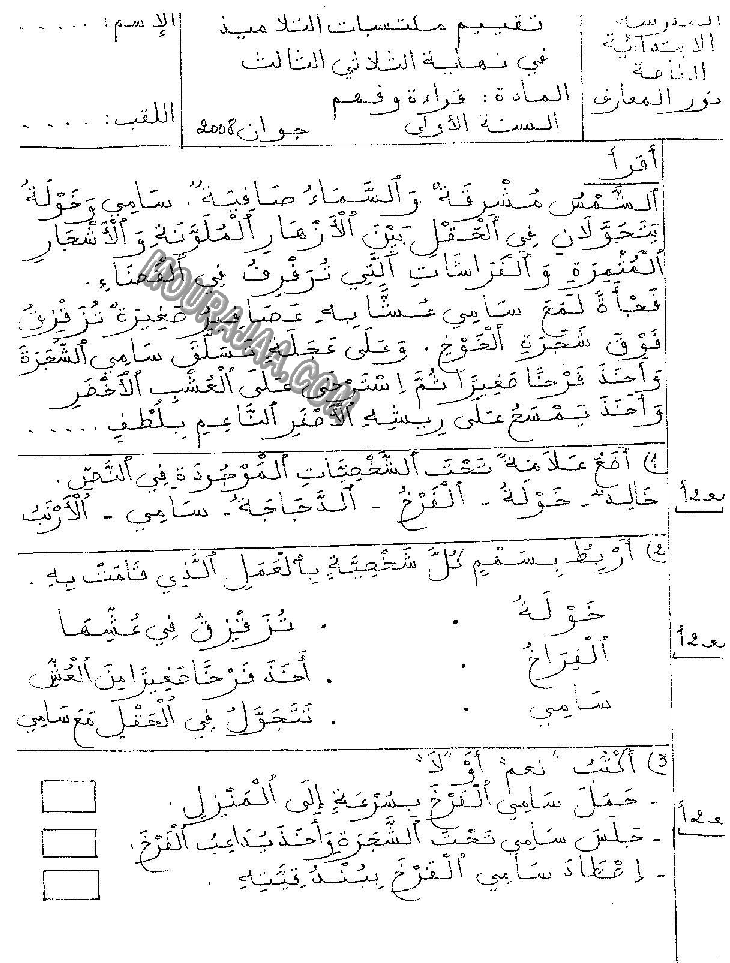 المدرسة
الابتدائية
الخاصة
نور المعارف
تقييم مكتسبات التلاميذ
في نهاية الثلاثي الثالث
المادة: قراءة وفهم
السنة الأولى جوان 2008
الإسم: .....
اللقب: .....
أقرأ
اَلشَّمْسُ مُشْرِقَةٌ وَالسَّمَاءُ صَافِيَةٌ. سَامِي وَخَوْلَةُ
يَتَجَوَّلَانِ فِي الْحَقْلِ بَيْنَ الْأَزْهَارِ الْمُلَوَّنَةِ وَالْأَشْجَارِ
الْمُثْمِرَةِ وَالْفَرَاشَاتِ الَّتِي تُرَفْرِفُ فِي الْفَضَاءِ.
فَجْأَةً لَمَحَ سَامِي عُشًّا بِهِ عَصَافِيرُ صَغِيرَةٌ تُزَقْزِقُ
فَوْقَ شَجَرَةِ الْخَوْخِ. وَعَلَى عَجَلٍ تَسَلَّقَ سَامِي الشَّجَرَةَ
وَأَخَذَ فَرْخًا صَغِيرًا ثُمَّ اِسْتَرْخَى عَلَى الْعُشْبِ الْأَخْضَرِ
وَأَخَذَ يَمْسَحُ عَلَى رِيشِهِ الْأَصْفَرِ النَّاعِمِ بِلُطْفٍ .....
1) أَضَعُ عَلَامَةً تَحْتَ الشَّخْصِيَّاتِ الْمَوْجُودَةِ فِي النَّصِّ.
خَالِدٌ - خَوْلَةُ - الْفَرْخُ - الدَّجَاجَةُ - سَامِي - الْأَرْنَبُ
2) أَرْبِطُ بِسَهْمٍ كُلَّ شَخْصِيَّةٍ بِالْعَمَلِ الَّذِي قَامَتْ بِهِ.
خَوْلَةُ . . تُزَقْزِقُ فِي عُشِّهَا
الْفِرَاخُ . . أَخَذَ فَرْخًا صَغِيرًا مِنَ الْعُشِّ
سَامِي . . تَتَجَوَّلُ فِي الْحَقْلِ مَعَ سَامِي
3) أَكْتُبُ "نعم" أَوْ "لَا"
- حَمَلَ سَامِي الْفَرْخَ بِسُرْعَةٍ إِلَى الْمَنْزِلِ.
- جَلَسَ سَامِي تَحْتَ الشَّجَرَةِ وَأَخَذَ يُدَاعِبُ الْفَرْخَ.
- اِصْطَادَ سَامِي الْفَرْخَ بِبُنْدُقِيَّتِهِ.
MOURAJAA.COM